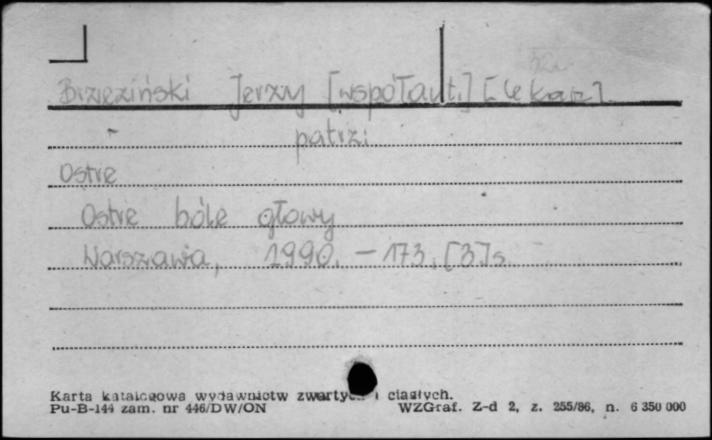 Brzeziński Jerzy [współaut.] [lekarz]
patrz:
Ostre
Ostre bóle głowy
Warszawa, 1990. - 173, [3] s.
Karta katalogowa wydawnictw zwartych i ciągłych.
Pu-B-144 zam. nr 446/DW/ON WZGraf. Z-d 2, z. 255/86, n. 6 350 000